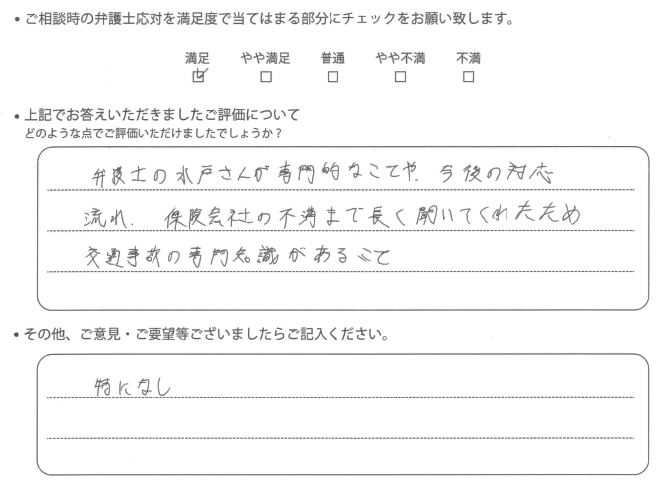 • ご相談時の弁護士応対を満足度で当てはまる部分にチェックをお願い致します。
満足 やや満足 普通 やや不満 不満
☑ □ □ □ □
• 上記でお答えいただきましたご評価について
どのような点でご評価いただけましたでしょうか？
弁護士の水戸さんが専門的なことや、今後の対応
流れ、保険会社の不満まで長く聞いてくれたため
交通事故の専門知識があること
• その他、ご意見・ご要望等ございましたらご記入ください。
特になし